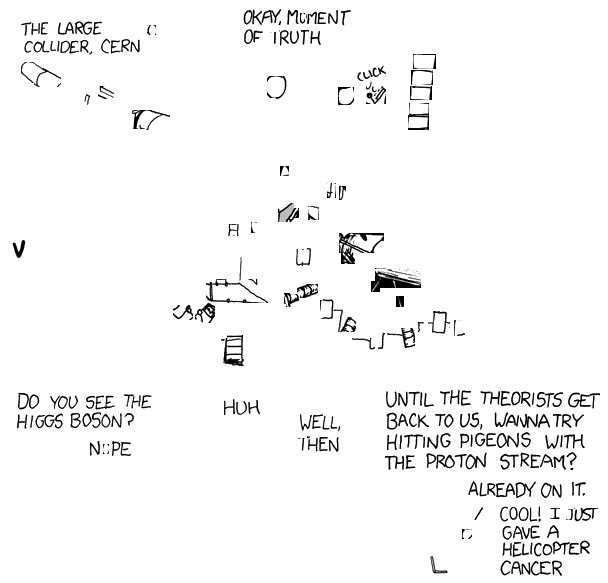 THE LARGE
COLLIDER, CERN
OKAY, MOMENT
OF TRUTH
CLICK
DO YOU SEE THE
HIGGS BOSON?
NOPE
HUH
WELL,
THEN
UNTIL THE THEORISTS GET
BACK TO US, WANNA TRY
HITTING PIGEONS WITH
THE PROTON STREAM?
ALREADY ON IT.
COOL! I JUST
GAVE A
HELICOPTER
CANCER